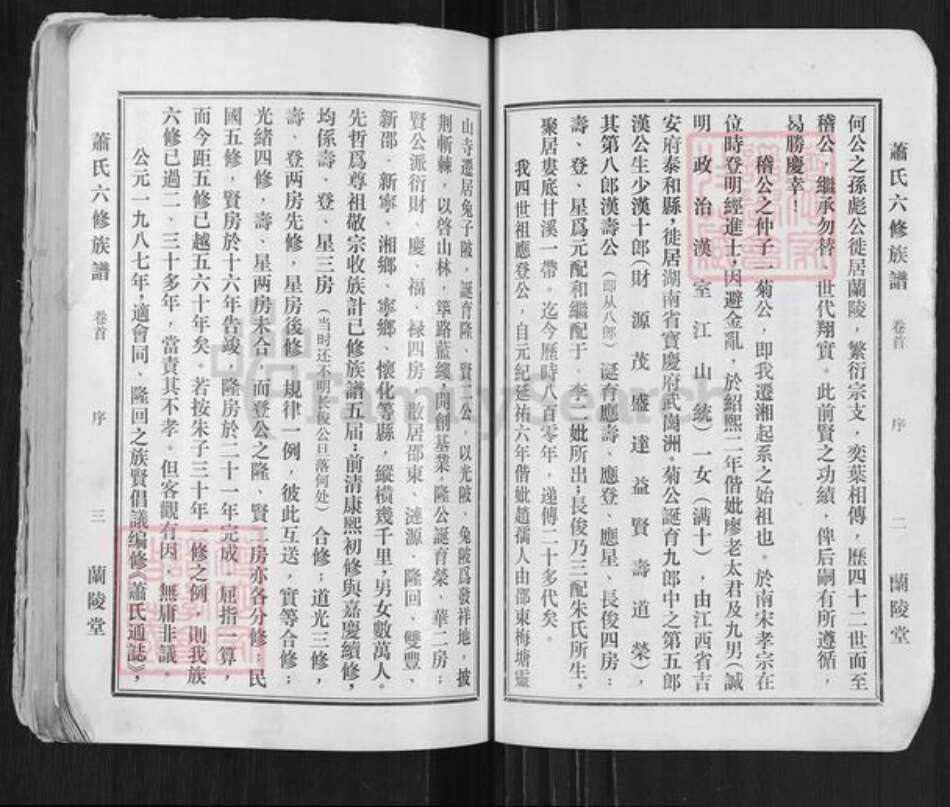 蕭氏六修族譜 卷首 序 二 蘭陵堂
何公之孫彪公徙居蘭陵，繁衍宗支，奕葉相傳，歷四十二世而至
稽公，繼承勿替，世代翔實。此前賢之功績，俾后嗣有所遵循，
曷勝慶幸！
稽公之仲子一菊公，即我遷湘起系之始祖也。於南宋孝宗在
位時登明經進士，因避金亂，於紹熙二年偕妣廖老太君及九男（誠
明 政 治 漢 室 江 山 統）一女（满十），由江西省吉
安府泰和縣，徙居湖南省寶慶府武崗洲。菊公誕育九郎中之第五郎
漢公生少漢十郎（財 源 茂 盛 達 益 賢 壽 道 榮），
其第八郎漢壽公（即从八郎）誕育應壽、應登、應星、長俊四房：
壽、登、星爲元配和繼配于、李二妣所出；長俊乃三配朱氏所生，
聚居婁底甘溪一帶。迄今歷時八百零年，递傳二十多代矣。
我四世祖應登公，自元紀延祐六年偕妣趙孺人由邵東梅塘靈
山寺遷居兔子陂，誕育隆、賢二公，以光陂、兔陂爲發祥地，披
荆斬棘，以啓山林，篳路藍縷，開創基業。隆公誕育榮、華二房；
賢公派衍財、慶、福、禄四房，散居邵東、漣源、隆回、雙豐、
新邵、新寧、湘鄉、寧鄉、懷化等縣，縱橫幾千里，男女數萬人。
先哲爲尊祖敬宗收族計已修族譜五届；前清康熙初修與嘉慶續修，
均係壽、登、星三房（当时还不明長俊公自落何处）合修；道光三修，
壽、登两房先修，星房後修，規律一例，彼此互送，實等合修；
光緒四修，壽、星两房未合，而登公之隆、賢二房亦各分修；民
國五修，賢房於十六年告竣，隆房於二十一年完成。屈指一算，
而今距五修已越五六十年矣。若按朱子三十年一修之例，則我族
六修已過二、三十多年，當責其不孝。但客觀有因，無庸非議。
公元一九八七年，適會同、隆回之族賢倡議编修《蕭氏通誌》，
蕭氏六修族譜 卷首 序 三 蘭陵堂
FamilySearch